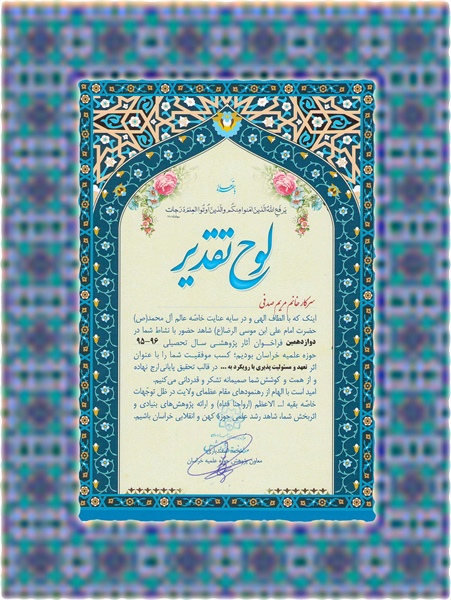 باسمه تعالی
یرفع الله الذین آمنوا منکم والذین أوتوا العلم درجات
لوح تقدیر
سرکار خانم مریم صدفی
اینک که با الطاف الهی و در سایه عنایت خاصّه عالم آل محمد(ص)
حضرت امام علی ابن موسی الرضا(ع) شاهد حضور با نشاط شما در
دوازدهمین فراخوان آثار پژوهشی سال تحصیلی ۹۶-۹۵
حوزه علمیه خراسان بودیم؛ کسب موفقیت شما را با عنوان
اثر تعهد و مسئولیت پذیری با رویکرد به ... در قالب تحقیق پایانی ارج نهاده
و از همت و کوشش شما صمیمانه تشکر و قدردانی می‌کنیم.
امید است با الهام از رهنمودهای مقام عظمای ولایت در ظل توجّهات
خاصّه بقیه ا... الاعظم (ارواحنا فداه) و ارائه پژوهش‌های بنیادی و
اثربخش شما، شاهد رشد علمی حوزه کهن و انقلابی خراسان باشیم.
معاون پژوهش حوزه علمیه خراسان